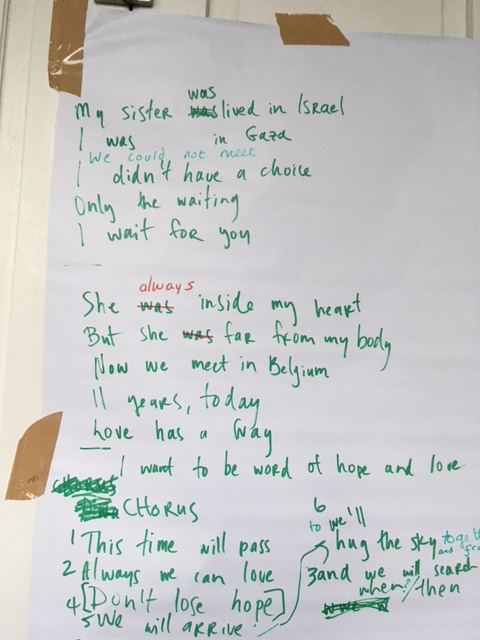 was
My sister was lived in Israel
I was in Gaza
We could not meet
I didn't have a choice
Only the waiting
I wait for you
always
She was inside my heart
But she was far from my body
Now we meet in Belgium
11 years, today
Love has a way
I want to be word of hope and love
CHORUS
CHORUS
1 This time will pass
2 Always we can love
4 [Don't lose hope]
5 We will arrive!
6
to we'll
hug the sky
3 and we will search
when / then